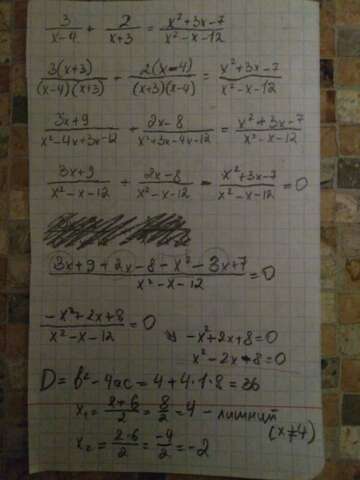 3/(x-4) + 2/(x+3) = (x²+3x-7)/(x²-x-12)
3(x+3)/((x-4)(x+3)) + 2(x-4)/((x+3)(x-4)) = (x²+3x-7)/(x²-x-12)
(3x+9)/(x²-4x+3x-12) + (2x-8)/(x²+3x-4x-12) = (x²+3x-7)/(x²-x-12)
(3x+9)/(x²-x-12) + (2x-8)/(x²-x-12) - (x²+3x-7)/(x²-x-12) = 0
(3x+9+2x-8-x²-3x+7)/(x²-x-12) = 0
(-x²+2x+8)/(x²-x-12) = 0
-x²+2x+8=0
x²-2x-8=0
D = b²-4ac = 4+4·1·8 = 36
x₁ = (2+6)/2 = 8/2 = 4 - лишний
(x≠4)
x₂ = (2-6)/2 = -4/2 = -2